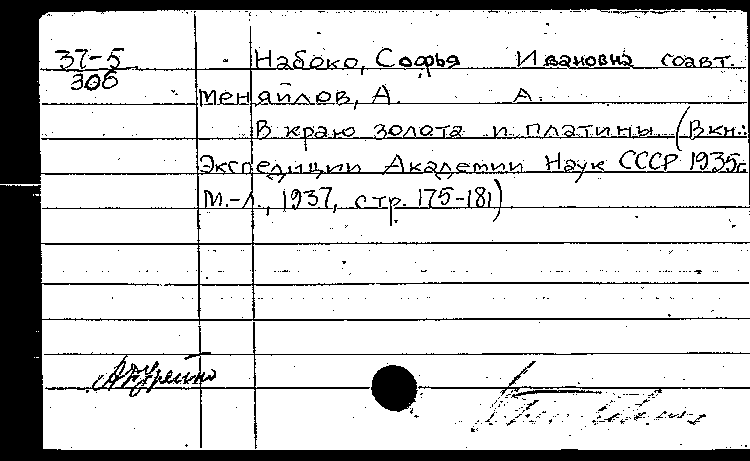 37-5
306
Набоко, Софья Ивановна соавт.
Меняйлов, А. А.
В краю золота и платины (В кн.:
Экспедиции Академии Наук СССР 1935г.
М.-Л., 1937, стр. 175-181)